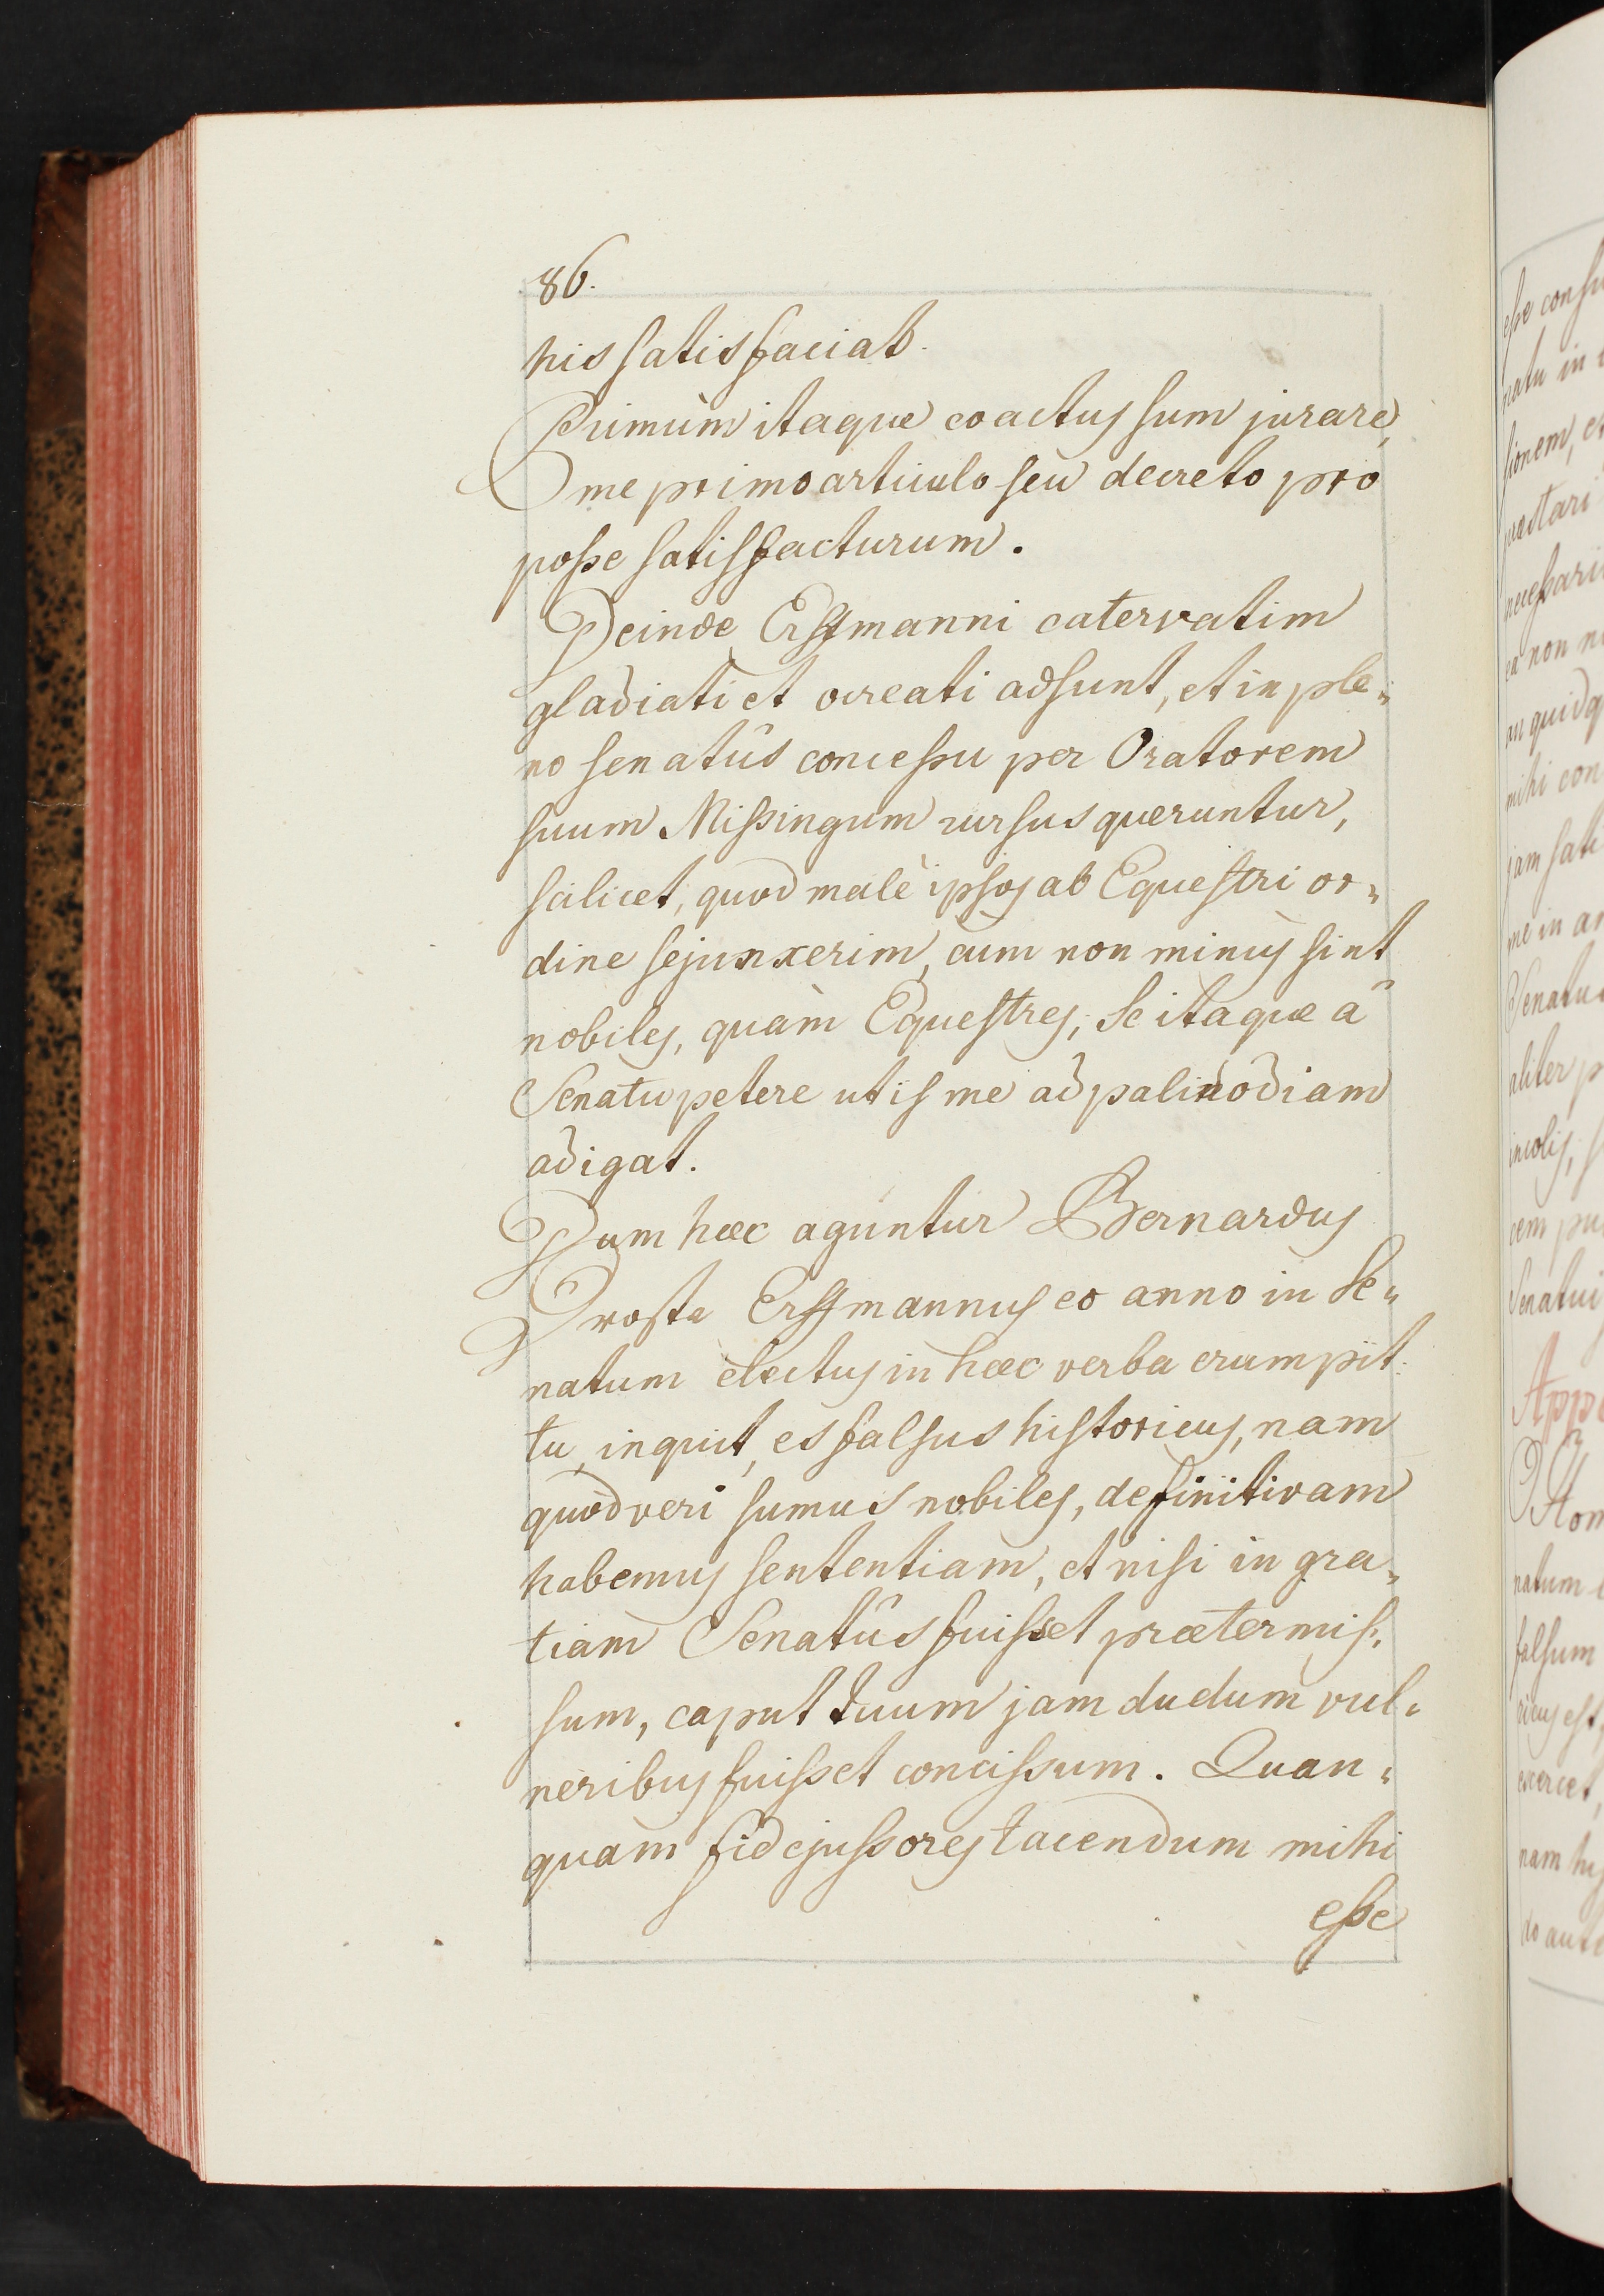 86.
his satisfaciat.
Primùm itaque coactus sum jurare,
me primo articulo seu decreto pro
posse satisfacturum.
Deinde Erffmanni catervatim
gladiati et ocreati adsunt, et in ple„
no senatûs concessu per Oratorem
suum Missingum rursus queruntur,
scilicet, quod malè ipsos ab Equestri or„
dine sejunxerim, cum non minus sint
nobiles, quàm Equestres; Se itaque à
Senatu petere ut is me ad palinodiam
adigat.
Dum hæc aguntur Bernardus
Droste Erffmannus eo anno in Se„
natum electus in hæc verba erumpit:
tu, inquit, es falsus historicus, nam
quod veri sumus nobiles, definitivam
habemus sententiam, et nisi in gra„
tiam Senatûs fuisset prætermis„
sum, caput tuum jam dudum vul„
neribus fuisset concissum. Quan„
quam fidejussores tacendum mihi
esse
esse consu
natu in
sionem, et
necessari
ea non n
an quidq
mihi con
jam sati
me in an
Senatu
aliter p
incolis, s
cem pu
Senatui
Appe
Hom
natum
falsum
ricus est,
exercet,
nam hi
do aut